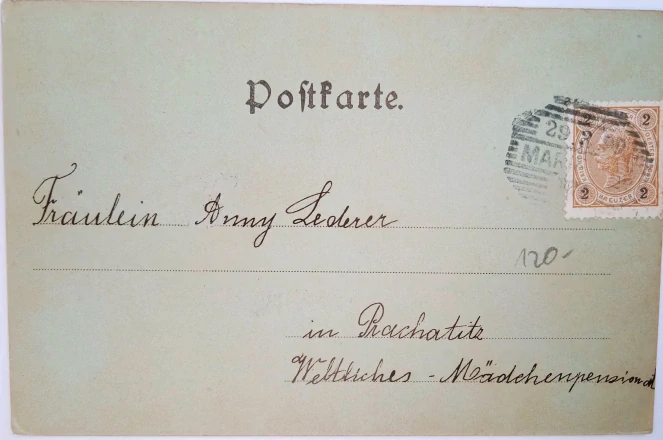 Postkarte.
29
MAR
2 2
2 2
KREUZER
Fräulein Anny Lederer
120.-
in Prachatitz
Weltliches - Mädchenpensionat